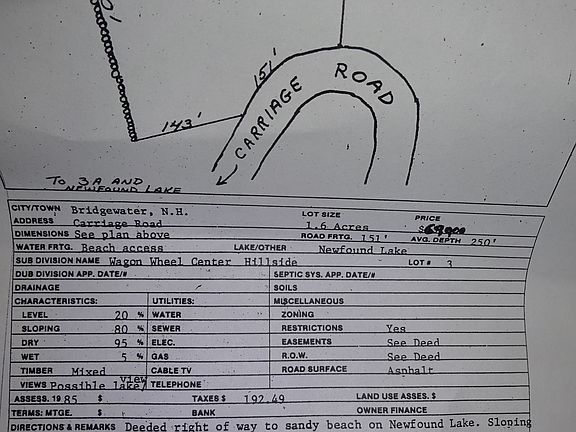 0'
151'
CARRIAGE ROAD
143'
TO 3A AND
NEWFOUND LAKE
CITY/TOWN Bridgewater, N.H. LOT SIZE PRICE
ADDRESS Carriage Road 1.6 Acres
DIMENSIONS See plan above ROAD FRTG. 151' AVG. DEPTH 250'
WATER FRTG. Beach access LAKE/OTHER Newfound Lake
SUB DIVISION NAME Wagon Wheel Center Hillside LOT # 3
DUB DIVISION APP. DATE/# SEPTIC SYS. APP. DATE/#
DRAINAGE SOILS
CHARACTERISTICS: UTILITIES: MISCELLANEOUS
LEVEL 20 % WATER ZONING
SLOPING 80 % SEWER RESTRICTIONS Yes
DRY 95 % ELEC. EASEMENTS See Deed
WET 5 % GAS R.O.W. See Deed
TIMBER Mixed CABLE TV ROAD SURFACE Asphalt
VIEWS Possible lake/ view TELEPHONE
ASSESS. 1985 $ TAXES $ 192.49 LAND USE ASSES. $
TERMS: MTGE. $ BANK OWNER FINANCE
DIRECTIONS & REMARKS Deeded right of way to sandy beach on Newfound Lake. Sloping